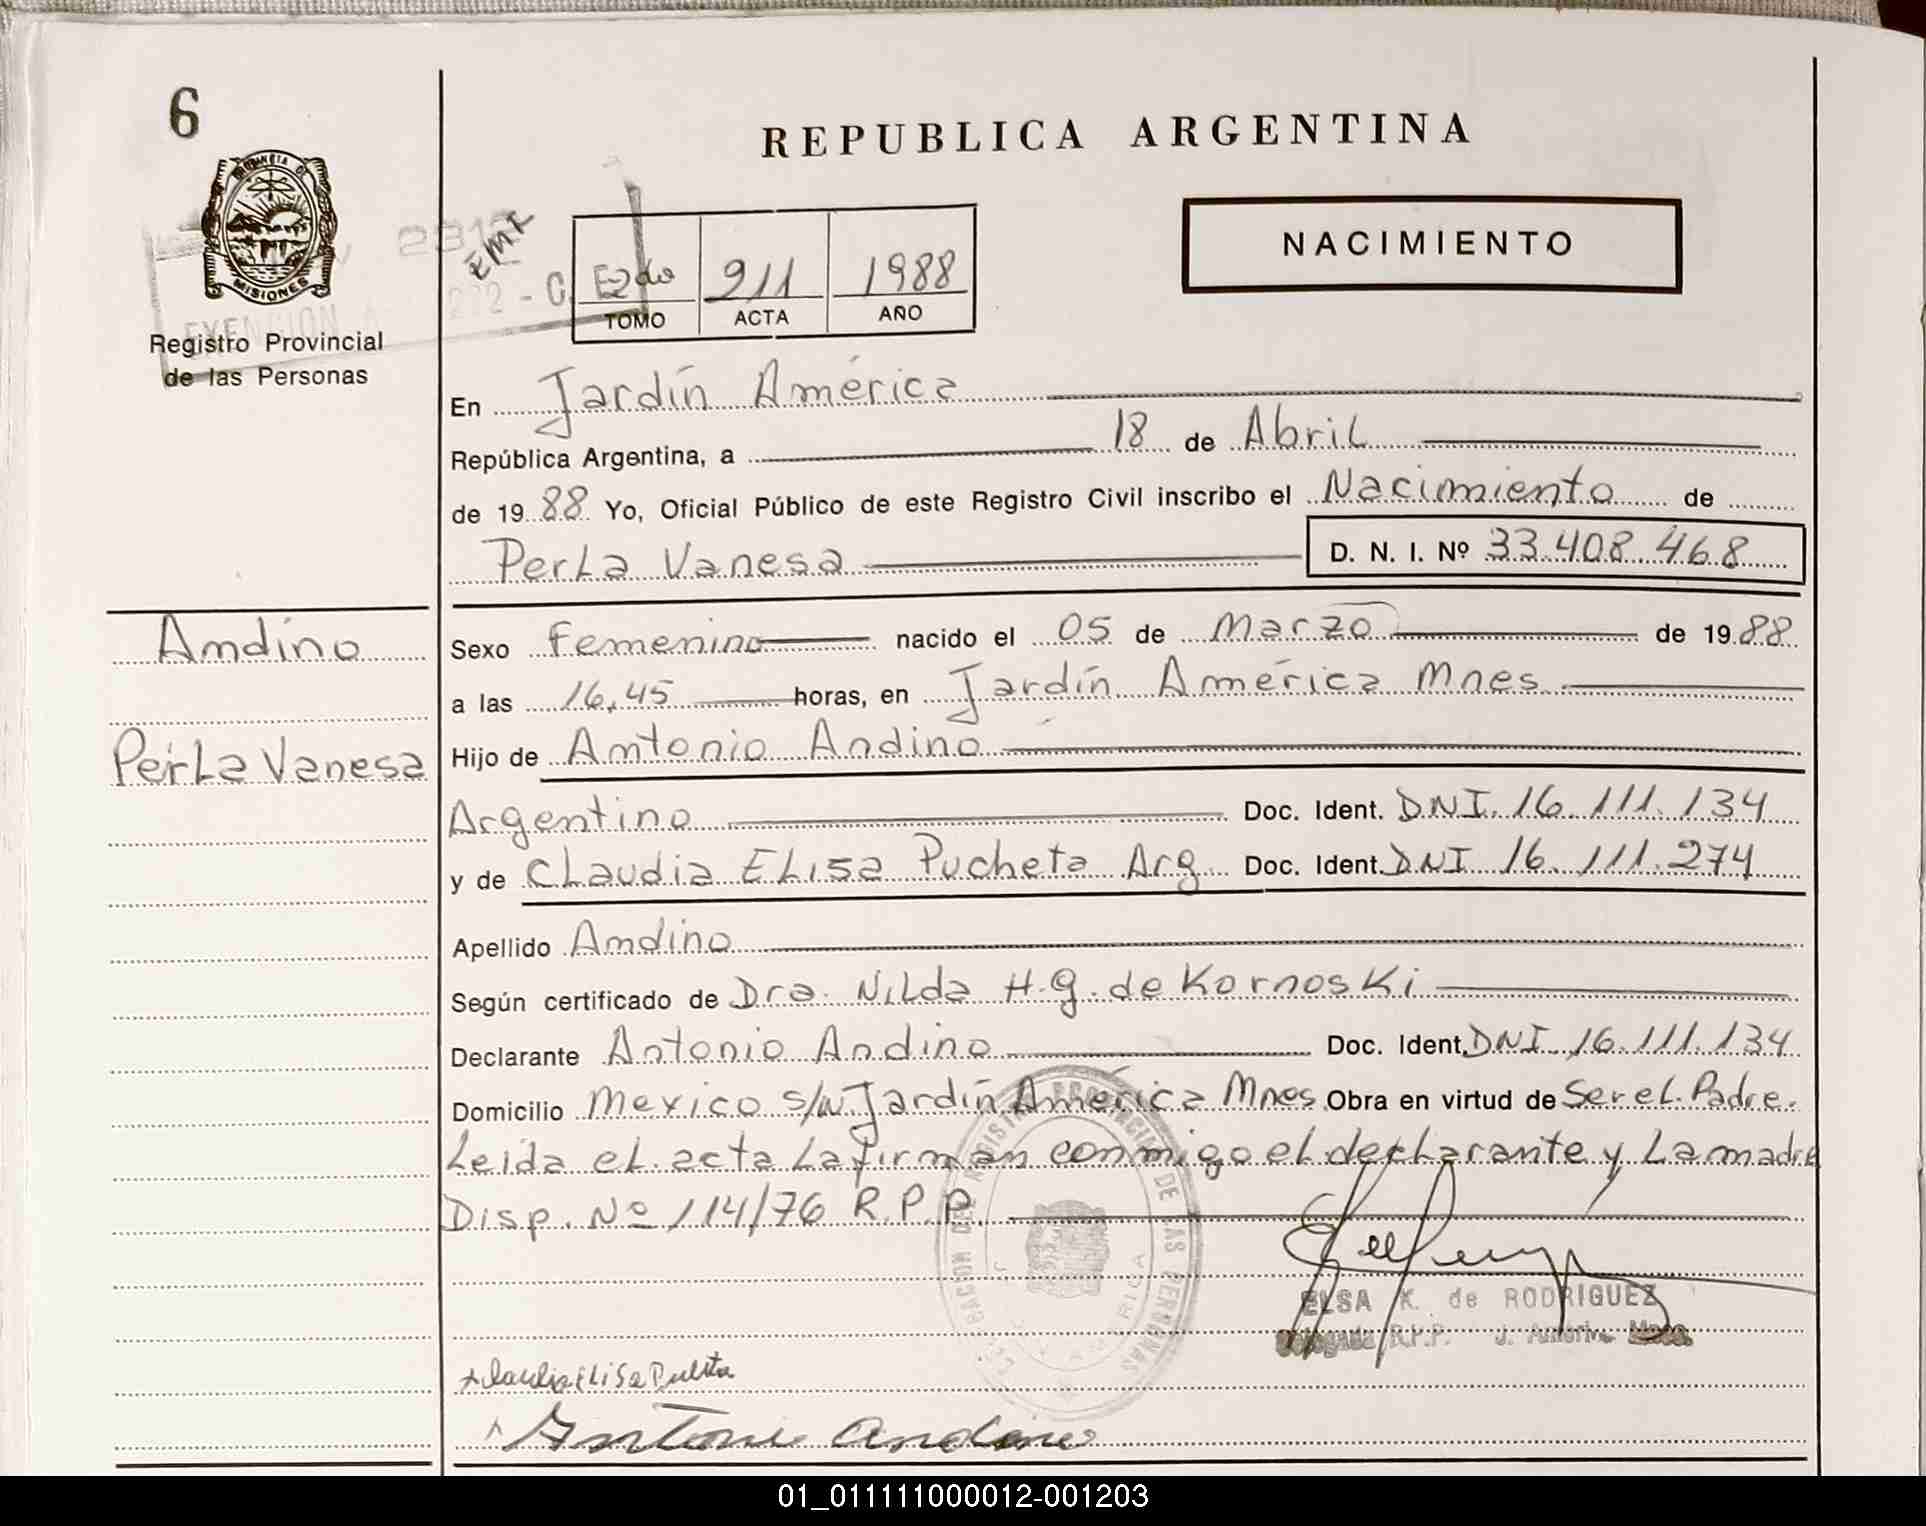 6
REPUBLICA ARGENTINA
PROVINCIA DE
MISIONES
Registro Provincial
de las Personas
E2do 211 1988
TOMO ACTA AÑO
NACIMIENTO
En Jardín América
República Argentina, a 18 de Abril
de 1988 Yo, Oficial Público de este Registro Civil inscribo el Nacimiento de
Perla Vanesa D. N. I. Nº 33.408.468
Andino
Perla Vanesa
Sexo Femenino nacido el 05 de Marzo de 1988
a las 16,45 horas, en Jardín América Mnes
Hijo de Antonio Andino
Argentino Doc. Ident. DNI. 16.111.134
y de Claudia Elisa Pucheta Arg. Doc. Ident. DNI 16.111.274
Apellido Andino
Según certificado de Dra. Nilda H.G. de Kornoski
Declarante Antonio Andino Doc. Ident. DNI 16.111.134
Domicilio Mexico s/n Jardín América Mnes Obra en virtud de Ser el Padre.
Leida el acta la firman conmigo el declarante y La madre
Disp. Nº 114/76 R.P.P.
ELSA K. de RODRIGUEZ
Delegada R.P.P. J. América Mnes.
Antonio Andino
01_011111000012-001203